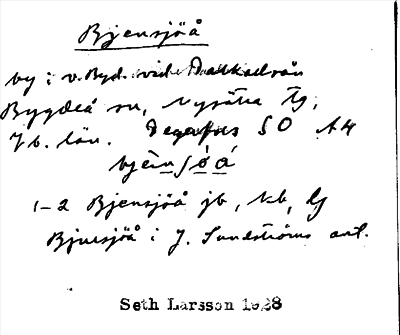 Bjensjöå
by i v. Byd. vid Dalkarlsån
Bygdeå sn, Nysätra tg,
Vb. län. Degerfors SO A4
bjènsöa
1-2 Bjensjöå jb, kb, lg
Bjursjöå i J. Sundströms ant.
Seth Larsson 1928